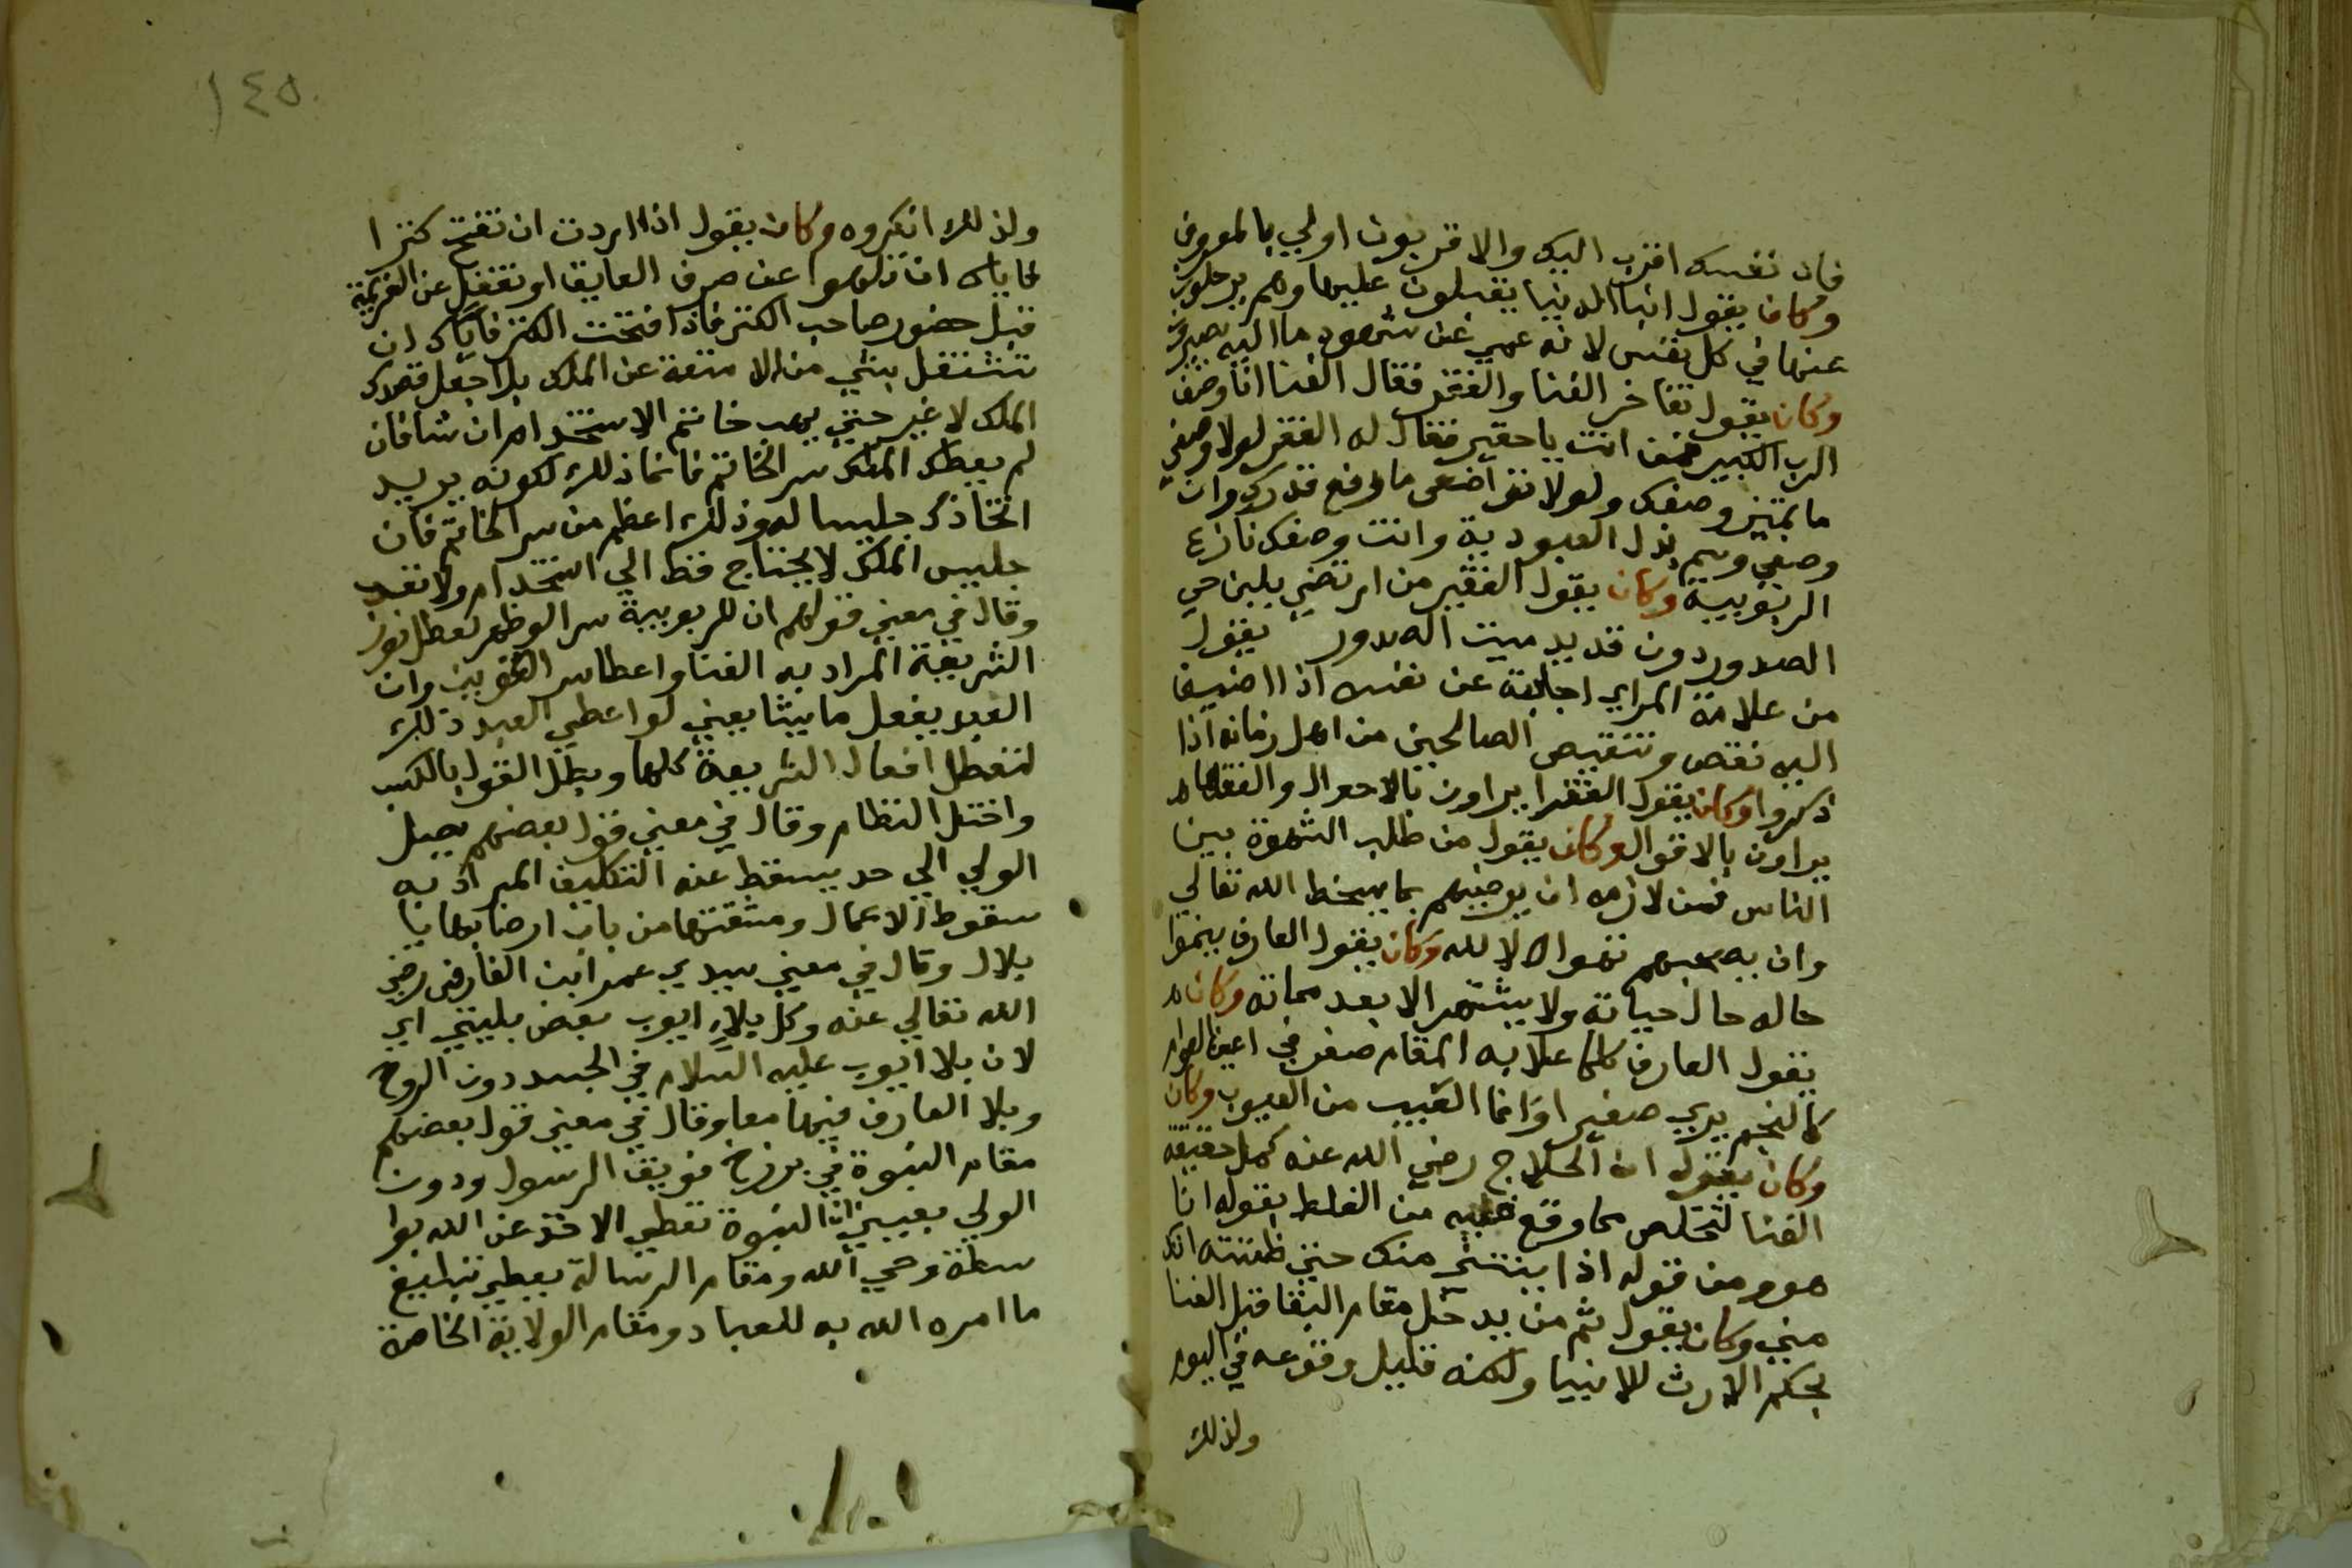 فان نفسك اقرب اليك والاقربون اولي بالمعروف
وكان يقول ابنا الدنيا يقبلون عليها وهم يرحلون
عنها في كل نفس لانه عمي عن شهود ما اليه يصيرون
وكان يقول تفاخر الغنا والفقر فقال الغنا انا وصف
الرب الكبير فمن انت يا حقير فقال له الفقر لولا وصفي
ما تميز وصفك ولولا تواضعي ما رفع قدرك وانا
وصفي وسم بذل العبودية وانت وصفك نازع
الربوبية وكان يقول الفقير من ارتضي بلبن حي
الصدور دون قديد ميت الصدور يقول
من علامة المراي اجابته عن نفسه اذا اضيف
اليه نقص وتنقيص الصالحين من اهل زمانه اذا
ذكروا وكان يقول الفقرا يراون بالاحوال والفقهاء
يراون بالاقوال وكان يقول من طلب الشهوة بين
الناس فمن لازمه ان يرضيهم بما يسخط الله تعالي
وان به نفواه لا لله وكان يقول العارف ينموا
حاله حال حياته ولا يشتهر الا بعد مماته وكان
يقول العارف كلما علا به المقام صغر في اعين العوام
كالنجم يري صغيرا وانما العيب من العيون وكان
وكان يقول ان الحلاج رضي الله عنه كمل حقيقة
الفنا لتخلص مما وقع فيه من الغلط بقوله انا
هو ومن قوله اذا ينتني منك حتي ظننت انك
مني وكان يقول ثم من يدخل مقام البقا قبل الفنا
بحكم الارث للانبيا ولكنه قليل وقوعه في اليوم
ولذلك
١٤٥
ولذلك انكروه وكان يقول اذا اردت ان تفتح كنزا
فاياك ان تلهوا عن صرف العايق او تغفل عن العزيمة
قبل حضور صاحب الكنز فاذا فتحت الكنز فاياك ان
تشتغل بشي من الامتعة عن الملك بل اجعل قصدك
الملك لا غير حتي يهب خاتم الاستخدام ان شا فان
لم يعطك الملك سر الخاتم فانما ذلك لكونه يريد
اتخاذك جليسا له وذلك اعظم من سر الخاتم فان
جليس الملك لا يحتاج قط الي استخدام ولا تعب
وقال في معني قولهم ان للربوبية سرا لو ظهر لعطل نور
الشريعة المراد به الفنا واعطا سر التكوين وان
العبد يفعل ما يشا يعني لو اعطي العبد ذلك
لتعطل افعال الشريعة كلها وبطل القول بالكسب
واختل النظام وقال في معني قول بعضهم يصل
الولي الي حد يسقط عنه التكليف المراد به
سقوط الاعمال ومشقتها من باب ارضا بها يا
بلال وقال في معني سيدي عمر ابن الفارض رضي
الله تعالي عنه وكل بلاء ايوب بعض بليتي اي
لان بلا ايوب عليه السلام في الجسد دون الروح
وبلا العارف فيهما معا وقال في معني قول بعضهم
مقام النبوة في برزخ فويق الرسول ودون
الولي يعني ان النبوة تعطي الاخذ عن الله بوا
سطة وحي الله ومقام الرسالة يعطي تبليغ
ما امره الله به للعباد ومقام الولاية الخاصة